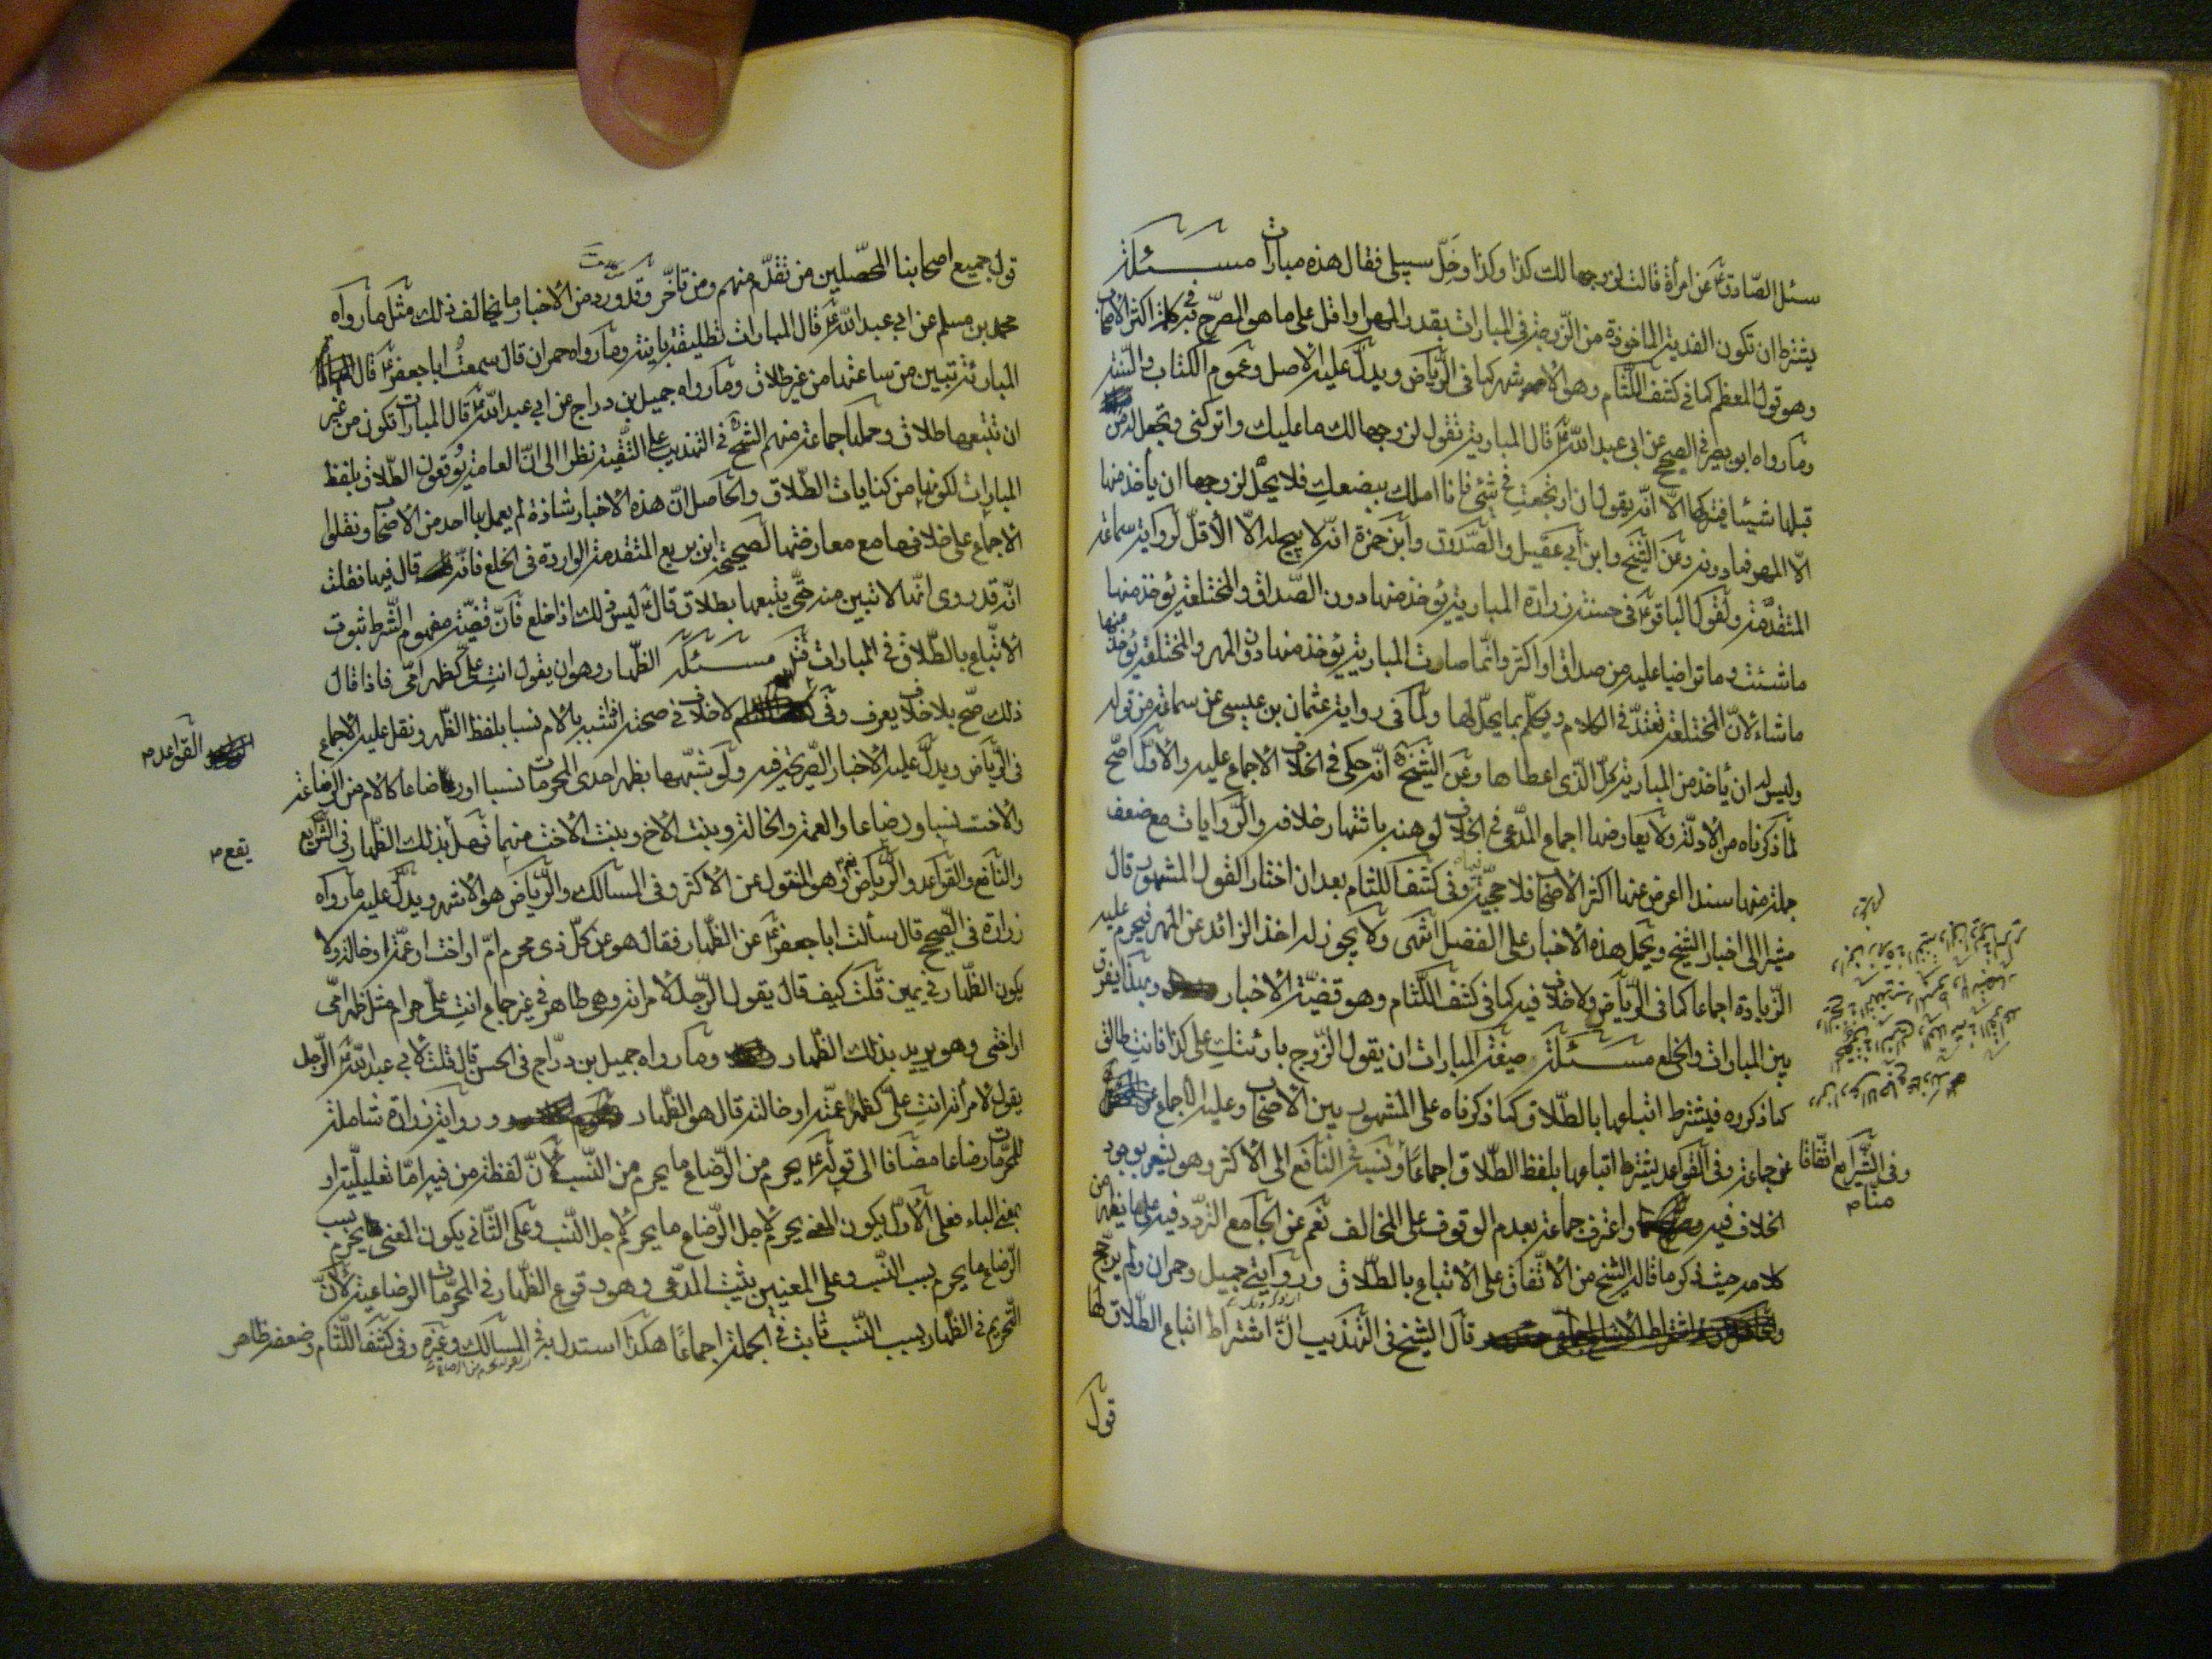 سئل الصّادق ع عن امرأة قالت لزوجها لك كذا وكذا وخلّ سبيلى فقال هذه مبارات مسـئلة
يشترط ان تكون الفدية الماخوذة من الزوجة فى المبارات بقدر المهر او اقل على ما هو المصرّح به فى كلام اكثر الاصحاب
وهو قول المعظم كما فى كشف اللثام وهو الاشهر كما فى الرّياض ويدلّ عليه الاصل وعموم الكتاب والسّنّة
وما رواه ابو بصير فى الصحيح عن ابى عبد اللّه ع قال المبارية تقول لزوجها لك ما عليك واتركنى وتجعل له من
قبلها شيئا فيتركها الّا انّه يقول ان ارتجعت فى شئ فانا املك ببضعك فلا يحلّ لزوجها ان يأخذ منها
الّا المهر فما دونه وعن الشّيخ وابن ابي عقيل والصّدوق وابن حمزة انّه لا يحلّ له الّا الاقلّ لرواية سماعة
المتقدّمة ولقول الباقر ع فى حسنة زرارة المبارية يؤخذ منها دون الصّداق والمختلعة يؤخذ منها
ما شئت وما تراضيا عليه من صداق او اكثر وانّما صارت المبارية يؤخذ منها دون المهر والمختلعة يؤخذ منها
ما شاء لانّ المختلعة تعتدّ فى الكلام وتكلّم بما يحلّ لها ولما فى رواية عثمان بن عيسى عن سماعة من قوله
وليس له ان يأخذ من المبارية كلّ الّذى اعطاها وعن الشّيخ انّه حكى فى الخلاف الاجماع عليه والاوّل اصّح
لما ذكرناه من الادلّة ولا يعارضها اجماع المدّعى فى الخلاف لوهنه باشتهار خلافه والرّوايات مع ضعف
جملة منها سندا اعرض عنها اكثر الاصحاب فلا حجيّة فيها وفى كشف اللثام بعد ان اختار القول المشهور قال
مشيرا الى اخبار الشّيخ ويحمل هذه الاخبار على الفضل انتهى ولا يجوز له اخذ الزائد عن المهر فيحرم عليه
الزّيادة اجماعا كما فى الرّياض ولا خلاف فيه كما فى كشف اللّثام وهو قضيّة الاخبار وبهذا يفرق
بين المبارات والخلع مسـئلة صيغة المبارات ان يقول الزّوج بارئتك على كذا فانت طالق
كما ذكروه فيشترط اتباعها بالطّلاق كما ذكرناه على المشهور بين الاصحاب وعليه الاجماع عن
عن جماعة وفى القواعد يشترط اتباعها بلفظ الطّلاق اجماعًا ونسبه فى النّافع الى الاكثر وهو يشعر بوجود
الخلاف فيه واعترف جماعة بعدم الوقوف على المخالف نعم عن الجامع التردّد فيه على ما يظهر من
كلامه حيث ذكر ما قاله الشّيخ من الاتّفاق على الاتباع بالطّلاق وروايتى جميل وحمران ولم يرجّح
قال الشّيخ فى التهذيب انّ اشتراط اتباع الطّلاق لها
وفى الشّرايع اتّفاقا
منّا م
قول
قول جميع اصحابنا المحصّلين من تقدّم منهم ومن تأخّر وقد ورد من الاخبار ما يخالف ذلك مثل ما رواه
محمد بن مسلم عن ابي عبد اللّه ع قال المبارات تطليقة باينة وما رواه حمران قال سمعت ابا جعفر ع قال
المبارئة تبين من ساعتها من غير طلاق وما رواه جميل بن دراج عن ابي عبد اللّه ع قال المبارات تكون من غير
ان تتبعها طلاق وحملها جماعة منهم الشّيخ فى التهذيب على التّقيّة نظرا الى انّ العامة يوقعون الطّلاق بلفظ
المبارات لكونها من كنايات الطّلاق والحاصل انّ هذه الاخبار شاذة لم يعمل بها احد من الاصحاب ونقلوا
الاجماع على خلافها مع معارضتها لصحيحة ابن بزيع المتقدمة الواردة فى الخلع فانّه قال فيها فقلت
انّه قد روى انّها لا تبين منه حتّى يتبعها بطلاق قال ليس ذلك اذا خلع فانّ قضيّة مفهوم الشّرط ثبوت
الاتباع بالطّلاق فى المبارات مسـئلة الظّهار وهو ان يقول انت علىّ كظهر امّى فاذا قال
ذلك صحّ بلا خلاف يعرف وفى لا خلاف فى صحته اذا شبّه بالام نسبا بلفظ الظّهر ونقل عليه الاجماع
فى الرّياض ويدلّ عليه الاخبار الصّريحة فيه ولو شبّهها بظهر احدى المحرمات نسبا او رضاعا كالام من الرضاعة
والاخت نسبا ورضاعا والعمة والخالة وبنت الاخ وبنت الاخت منهما فهل بذلك الظّهار فى الشّرايع
والنّافع والقواعد والرّياض نعم وهو المنقول عن الاكثر وفى المسالك والرّياض هو الاشهر ويدلّ عليه ما رواه
زرارة فى الصّحيح قال سألت ابا جعفر ع عن الظّهار فقال هو عن كلّ ذى محرم امّ او اخت او عمّة او خالة ولا
يكون الظّهار فى يمين قلت كيف قال يقول الرّجل لامراته وهى طاهر فى غير جماع انت علىّ حرام مثل ظهر امّى
او اختى وهو يريد بذلك الظّهار وما رواه جميل بن درّاج فى الحسن قال قلت لابى عبد اللّه ع الرّجل
يقول لامرأته انت علىّ كظهر عمّته او خالته قال هو الظّهار ورواية زرارة شاملة
للمحرّمات رضاعا مضافا الى قوله ع يحرم من الرّضاع ما يحرم من النّسب فانّ لفظة من فيه امّا تعليليّة او
بمعنى الباء فعلى الاوّل يكون المعنى يحرم لاجل الرّضاع ما يحرم لاجل النّسب وعلى الثّانى يكون المعنى يحرم بسبب
الرّضاع ما يحرم بسبب النّسب وعلى المعنيين يثبت المدّعى وهو وقوع الظّهار فى المحرّمات الرضاعية لانّ
التّحريم فى الظّهار بسبب النّسب ثابت فى الجملة اجماعًا هكذا استدل به فى المسالك وغيره وفى كشف اللّثام وضعفه ظاهر
القواعد م
يقع م